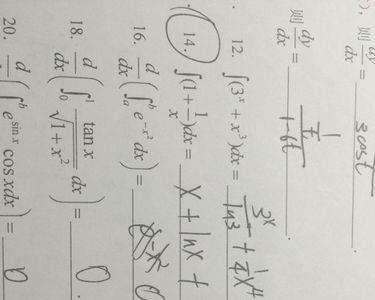 ), 则 \frac{dy}{dx} = 3cost
则 \frac{dy}{dx} = .
12. ∫(3^x + x^3)dx = \frac{3^x}{ln3} + \frac{1}{4}x^4
14. ∫(1 + \frac{1}{x})dx = x + lnx +
16. \frac{d}{dx}(∫_a^b e^{-x^2} dx) = 0
18. \frac{d}{dx}(∫_0^1 \frac{tan x}{\sqrt{1+x^2}} dx) = 0.
20. \frac{d}{dx}(∫^b e^{sin x} cos xdx) = 0